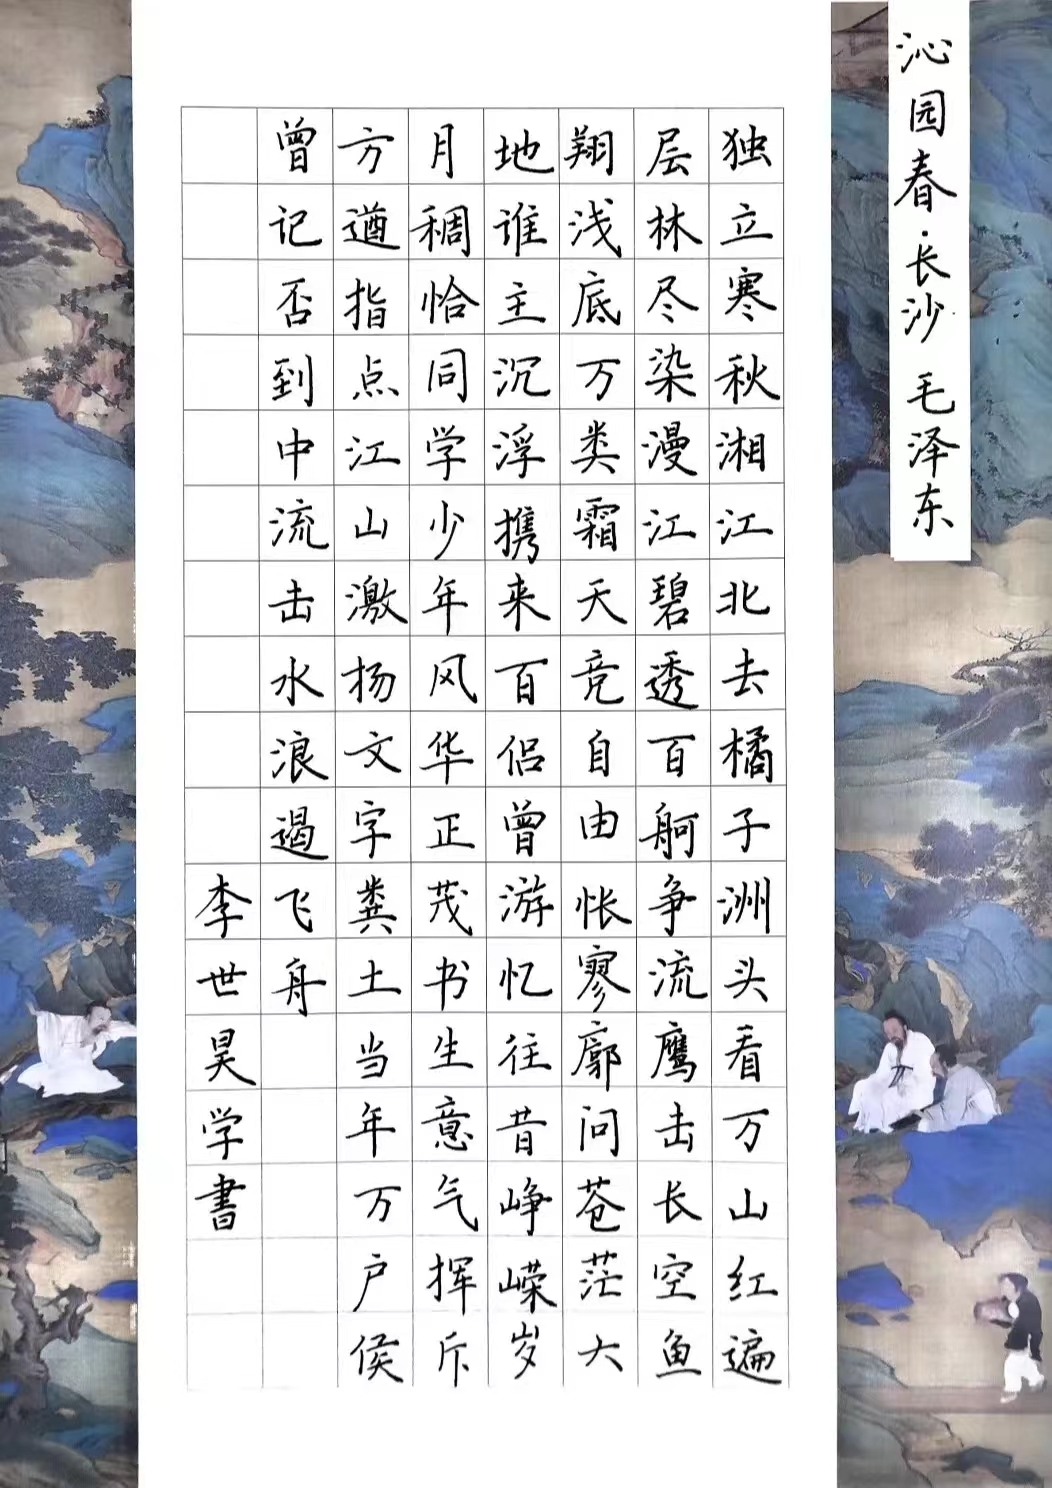 沁园春·长沙 毛泽东
独立寒秋湘江北去橘子洲头看万山红遍
层林尽染漫江碧透百舸争流鹰击长空鱼
翔浅底万类霜天竞自由怅寥廓问苍茫大
地谁主沉浮携来百侣曾游忆往昔峥嵘岁
月稠恰同学少年风华正茂书生意气挥斥
方遒指点江山激扬文字粪土当年万户侯
曾记否到中流击水浪遏飞舟
李世昊学書